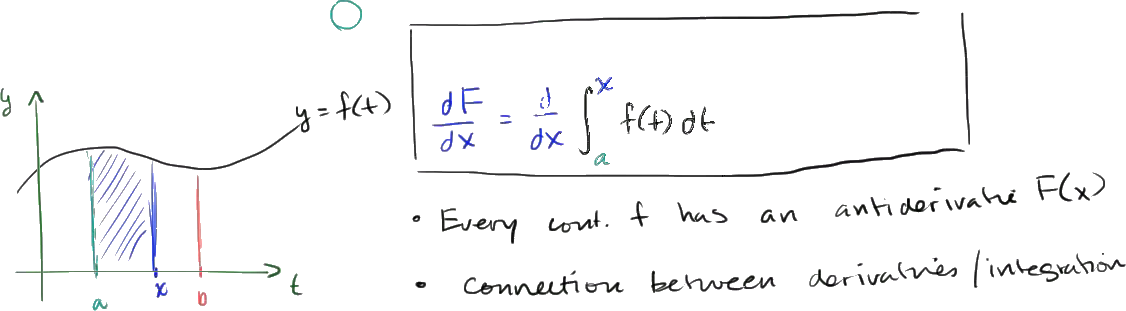 y
y = f(t)
a
x
b
t
dF/dx = d/dx ∫ₐˣ f(t) dt
• Every cont. f has an antiderivative F(x)
• connection between derivatives/integration